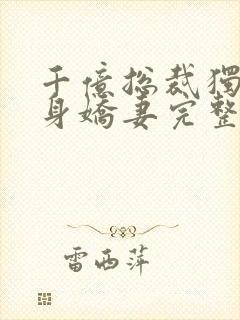 千億總裁獨
身嬌妻完整
雷西萍